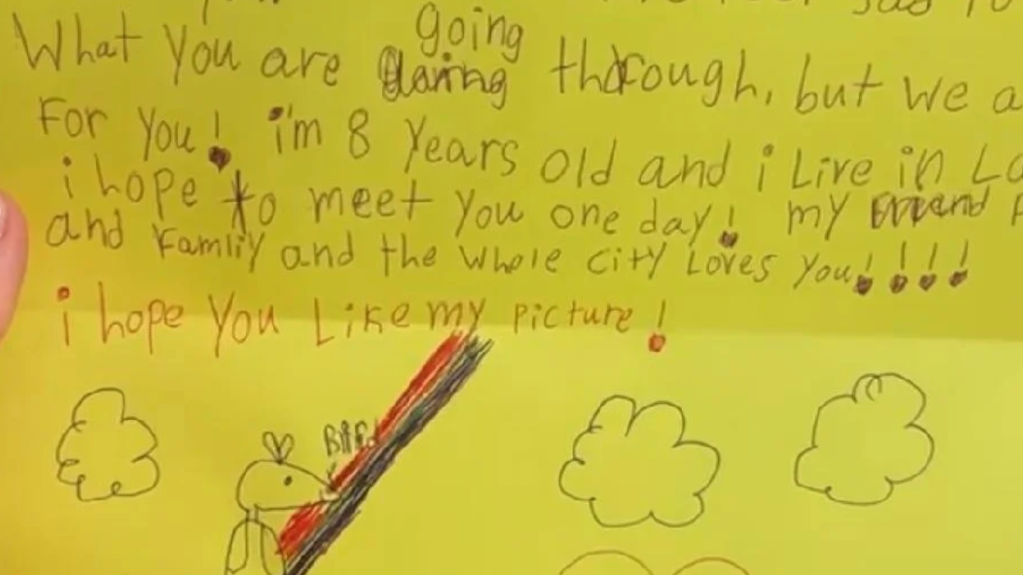 going
What You are through, but we a
For You! i'm 8 Years old and i Live in La
i hope to meet you one day! my
and Famliy and the whole city Loves you!!!!
i hope You Like my picture!
Bird